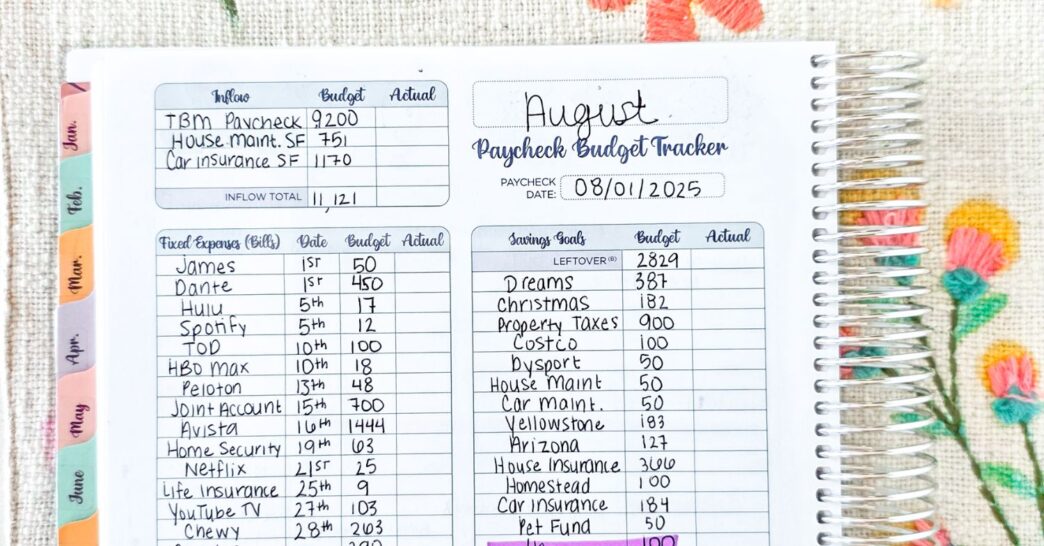 Jan.
Feb.
Mar.
Apr.
May
June
Inflow Budget Actual
TBM Paycheck 9200
House maint. SF 751
Car insurance SF 1170
INFLOW TOTAL 11,121
August
Paycheck Budget Tracker
PAYCHECK DATE: 08/01/2025
Fixed Expenses (Bills) Date Budget Actual
James 1st 50
Dante 1st 450
Hulu 5th 17
Spotify 5th 12
TOD 10th 100
HBO max 10th 18
Peloton 13th 48
Joint Account 15th 700
Avista 16th 1444
Home Security 19th 63
Netflix 21st 25
Life Insurance 25th 9
YouTube TV 27th 103
Chewy 28th 263
Savings Goals Budget Actual
LEFTOVER (B) 2829
Dreams 387
Christmas 182
Property Taxes 900
Costco 100
Dysport 50
House Maint 50
Car Maint. 50
Yellowstone 183
Arizona 127
House Insurance 366
Homestead 100
Car insurance 184
Pet Fund 50
100